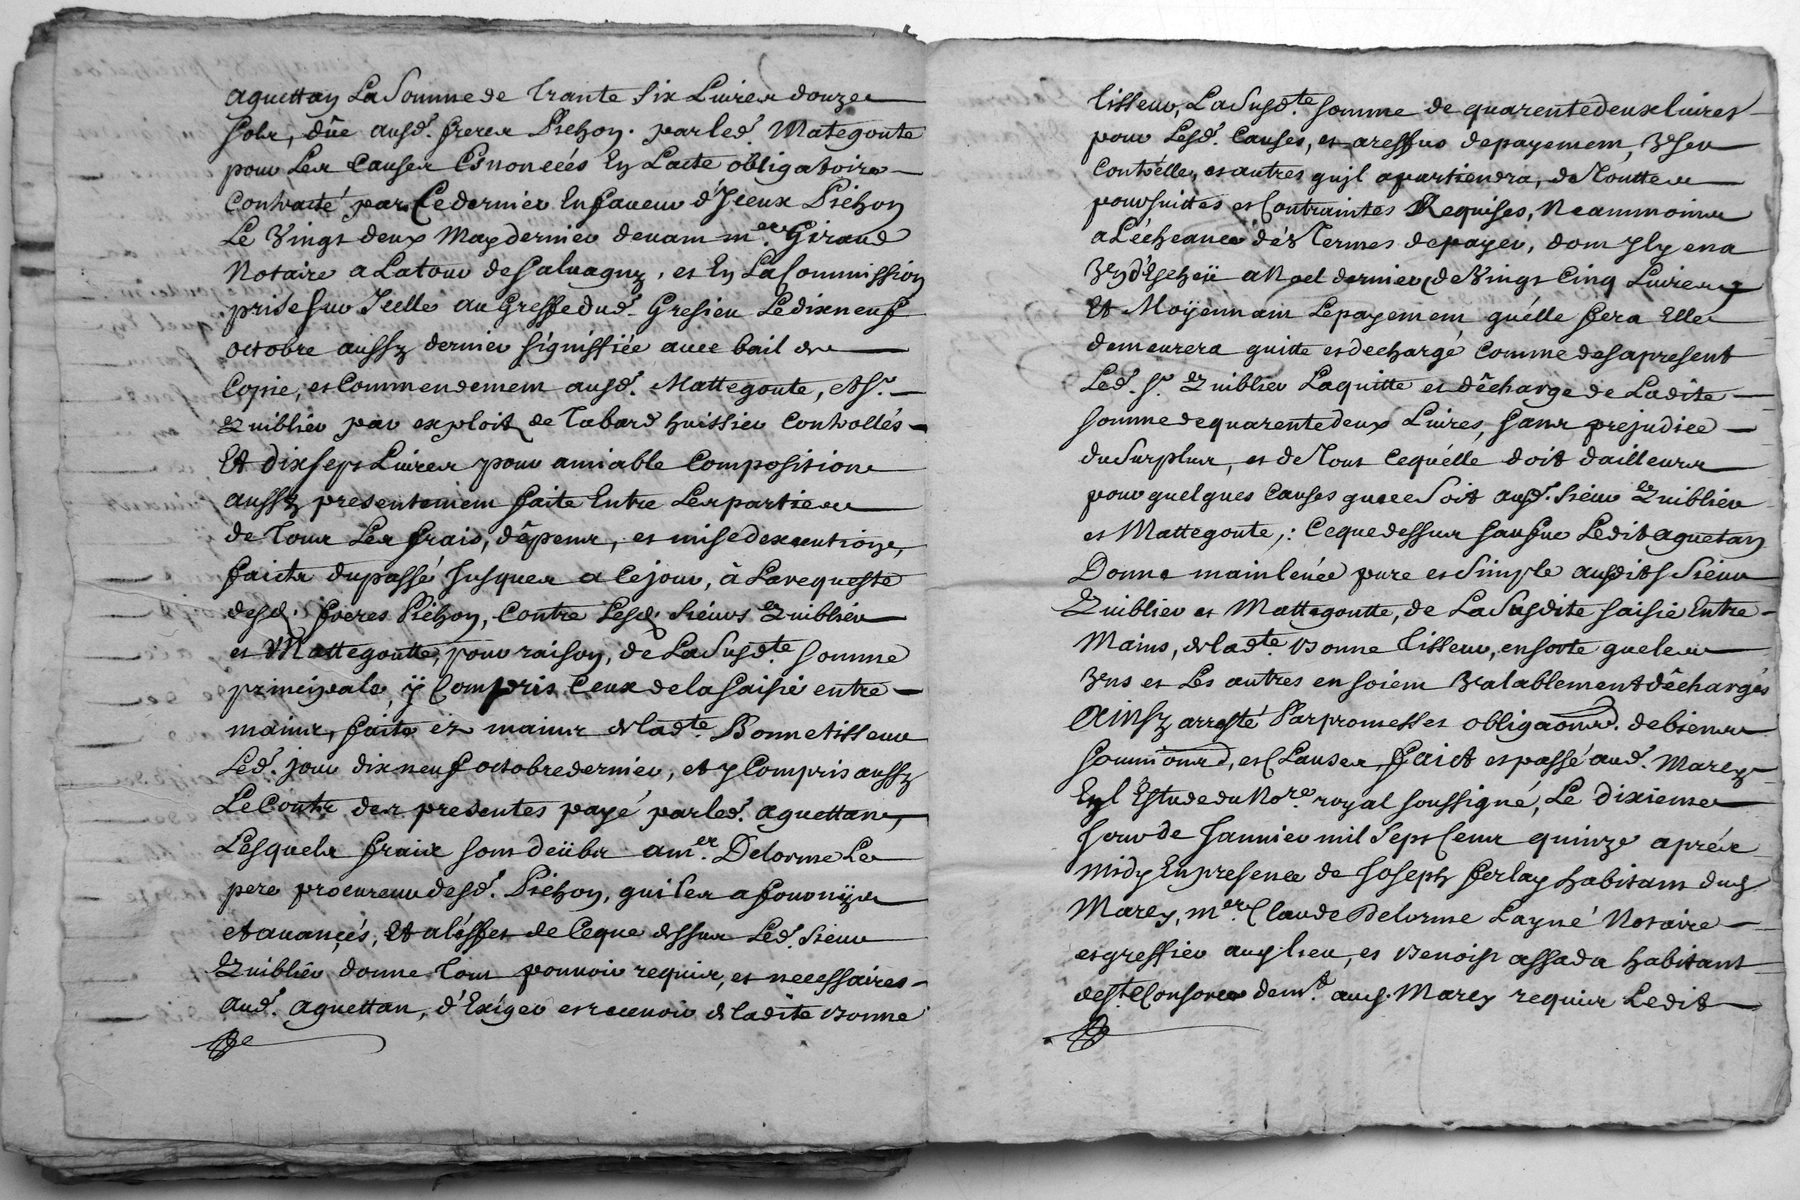 aguettan La Somme de Trante Six Livres douze
sols, dûe ausd. freres Pichon. par led. Mategoute
pour Les Causes Esnoncéés En Lacte obligatoire
Contracté par Ce dernier En faveur d'Jceux Pichon
Le Vingt deux May dernier devant mer. Giraud
Notaire a Latour de Salvagny, et En La Commission
prise sur Jcelle au Greffe dud. Gresieu Le dix neuf
octobre aussy dernier signiffiée avec bail de
Copie, et Commendement ausd. Mattegoute, et Sr.
Quiblier par exploit de Tabard huissier Controllés
Et dix sept Livres pour amiable Composition
aussy presentement faite Entre Les parties
de Tous Les frais, dêpens, et mise dexecution,
faicts du passé Jusques a Ce jour, â La requeste
desd. freres Pichon, Contre Lesd. Sieurs Quiblier
et Mattegoutte, pour raison, de La Susdte. Somme
principale, ÿ Compris Ceux de la Saisie entre
mains, faite ez mains de ladte. Bonne tisseur
Led. jour dix neuf octobre dernier, et y Compris aussy
Le Coutz des presentes payé par led. aguettan,
Lesquels fraix sont deübs a mer. Delorme Le
pere procureur desd. Pichon, qui Les a fournÿs
et avançés, Et aléffet de Ceque dessus Led. Sieur
Quiblier donne Tous pouvoir requis, et necessaires
aud. aguettan, d'Exiger et recevoir de ladite Bonne
Tisseur, La Susdte. Somme de quarente deux livres
pour Lesd. Causes, et a reffus de payement, Vser
Contrélle, et autres qujl apartiendra, de Toutte
poursuittes et Contraintes Requises, Neammoins
a Léchéance dés Termes de payer, dont Jl y en a
Vn d'Escheü a Noel dernier, de Vingt Cinq Livres
Et Moÿennant Le payement quélle fera Elle
demeurera quitte et dechargé Comme des apresent
Led. Sr. Quiblier Laquitte et dêcharge de Ladite
Somme de quarente deux Livres, Sans prejudice
du Surplus, et de Tout Cequélle doit dailleurs
pour quelques Causes que ce Soit ausd. Sieur Quiblier
et Mattegoute,: Ceque dessus Sauf que Ledit aguetan
Donne mainlevée pure et Simple ausdits Sieur
Quiblier et Mattegoutte, de La Susdite Saisie Entre
Mains, de ladte. Bonne Tisseur, en sorte que les
Vns et Les autres en soient Valablement dêchargés
Ainsy arresté Par promesses obligaons. de biens
Soumions, et Clauses, Faict et passé aud. Marcy
En l'Estude du Nore. royal soussigné, Le dixieme
Jour de Janvier mil Sept Cens quinze aprés
midy En presence de Joseph ferlay habitant dud
Marcy, mer. Claude Delorme Layné Notaire
et greffier aud lieu, et Benoist assada habitant
de Ste Consorce demt. aud. Marcy requis Ledit